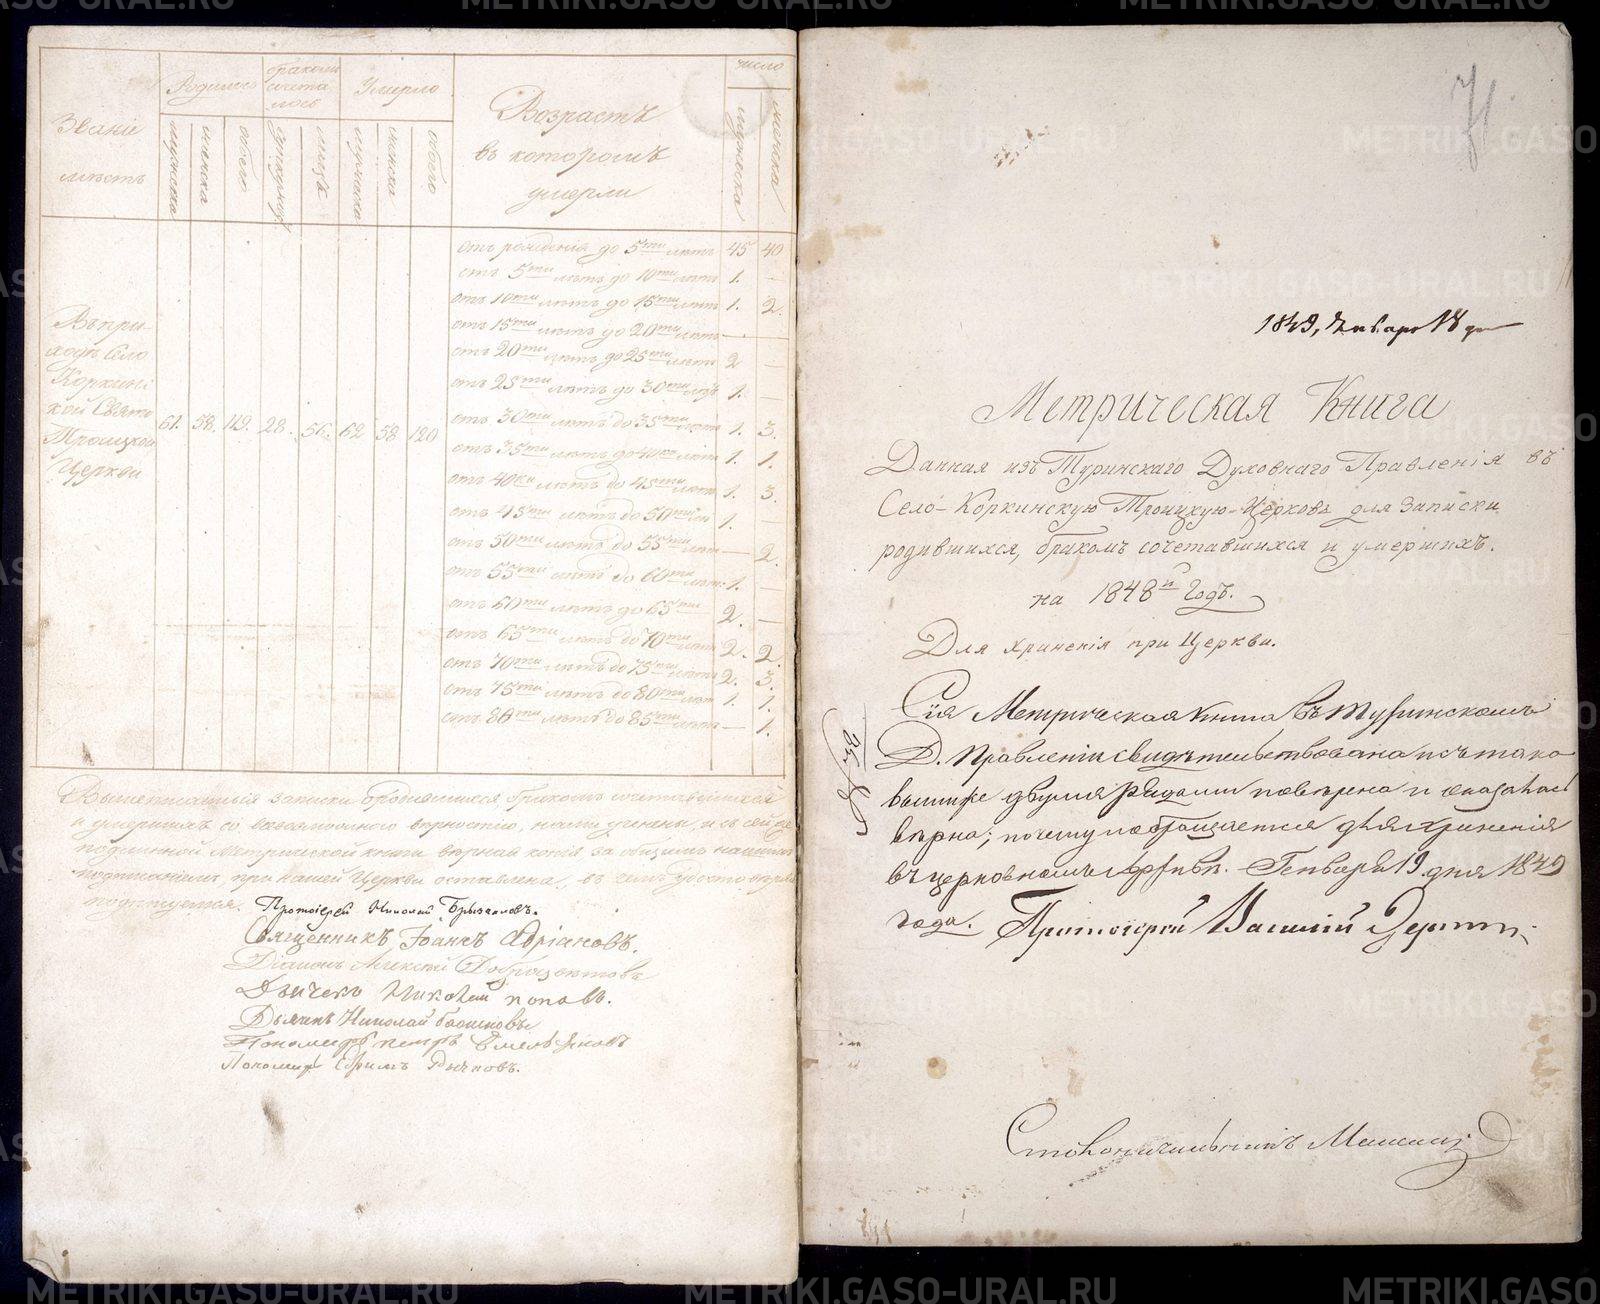 Званіе
мѣстъ
Родилось
бракомъ
сочета
лось
Умерло
Возрастъ
въ которомъ
умерли
число
мужеска
женска
обоего
супружес
лицъ
мужеска
женска
обоего
мужеска
женска
Въ при-
ходѣ Село
Коркинс
кой Свято
Троицкой
Церкви
61. 58. 119. 28. 56. 62 58 120
отъ рожденія до 5ти лѣтъ 45 40
отъ 5ти лѣтъ до 10ти лѣтъ 1. —
отъ 10ти лѣтъ до 15ти лѣтъ 1. 2.
отъ 15ти лѣтъ до 20ти лѣтъ — —
отъ 20ти лѣтъ до 25ти лѣтъ 2 —
отъ 25ти лѣтъ до 30ти лѣтъ 1. —
отъ 30ти лѣтъ до 35ти лѣтъ 1. 3.
отъ 35ти лѣтъ до 40ка лѣтъ 1. 1.
отъ 40ка лѣтъ до 45ти лѣтъ 1. 3.
отъ 45ти лѣтъ до 50ти лѣтъ 1. —
отъ 50ти лѣтъ до 55ти лѣтъ — 2.
отъ 55ти лѣтъ до 60ти лѣтъ 1. —
отъ 60ти лѣтъ до 65ти 2. —
отъ 65ти лѣтъ до 70ти лѣтъ 2. 2.
отъ 70ти лѣтъ до 75ти лѣтъ 2. 3.
отъ 75ти лѣтъ до 80ти лѣтъ 1. 1.
отъ 80ти лѣтъ до 85ти лѣтъ — 1.
Вышеписанныя записки о родившихся, бракомъ сочетавшихся
и умершихъ со всевозможною вѣрностію, нами учинены и съ сей
подлинной Метрической книги вѣрная копія за общимъ нашимъ
подписаніемъ при нашей Церкви оставлена, въ чемъ удостовѣряя
подпишемся. Протоіерей Николай
Священникъ Іоаннъ Адріановъ.
Діаконъ Алексѣй
Дьячекъ Николай Поповъ.
Дьячекъ Николай
Пономарь Петръ Емельяновъ
Пономарь Ефимъ Рычковъ.
71
1849, Января 18 дня
Метрическая Книга
Данная изъ Туринскаго Духовнаго Правленія въ
Село-Коркинскую Троицкую-Церковь для записки
родившихся, бракомъ сочетавшихся и умершихъ.
на 1848й Годъ.
Для храненія при Церкви.
Сія Метрическая книга въ Туринскомъ
Д. Правленіи свидѣтельствована и съ тако
выми же двумя повѣрена и оказалась
вѣрна; почему и обращается для храненія
въ церковномъ архивѣ. – Генваря 19 дня 1849
года. Протоіерей Василій
№ 32
Столоначальникъ
METRIKI.GASO-URAL.RU